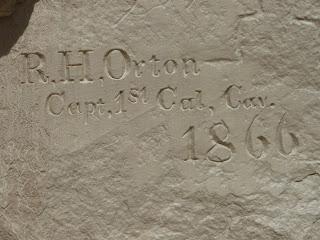 R.H. Orton
Capt, 1st Cal, Cav.
1866